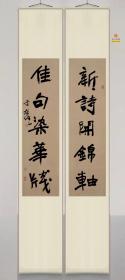 新詩開錦軸
佳句染華牋